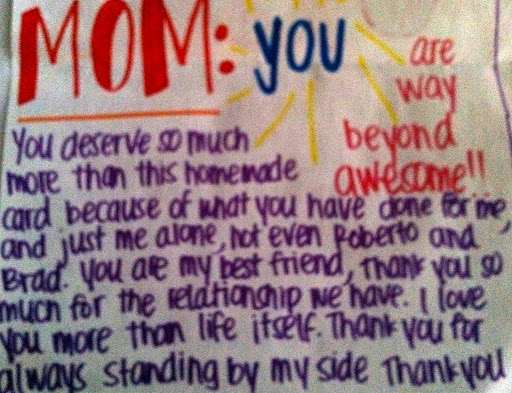 MOM: you
are
way
beyond
awesome!!
You deserve so much
more than this homemade
card because of what you have done for me,
and just me alone, not even Roberto and
Brad. You are my best friend, Thank you so
much for the relationship we have. I love
you more than life itself. Thank you for
always standing by my side Thank you